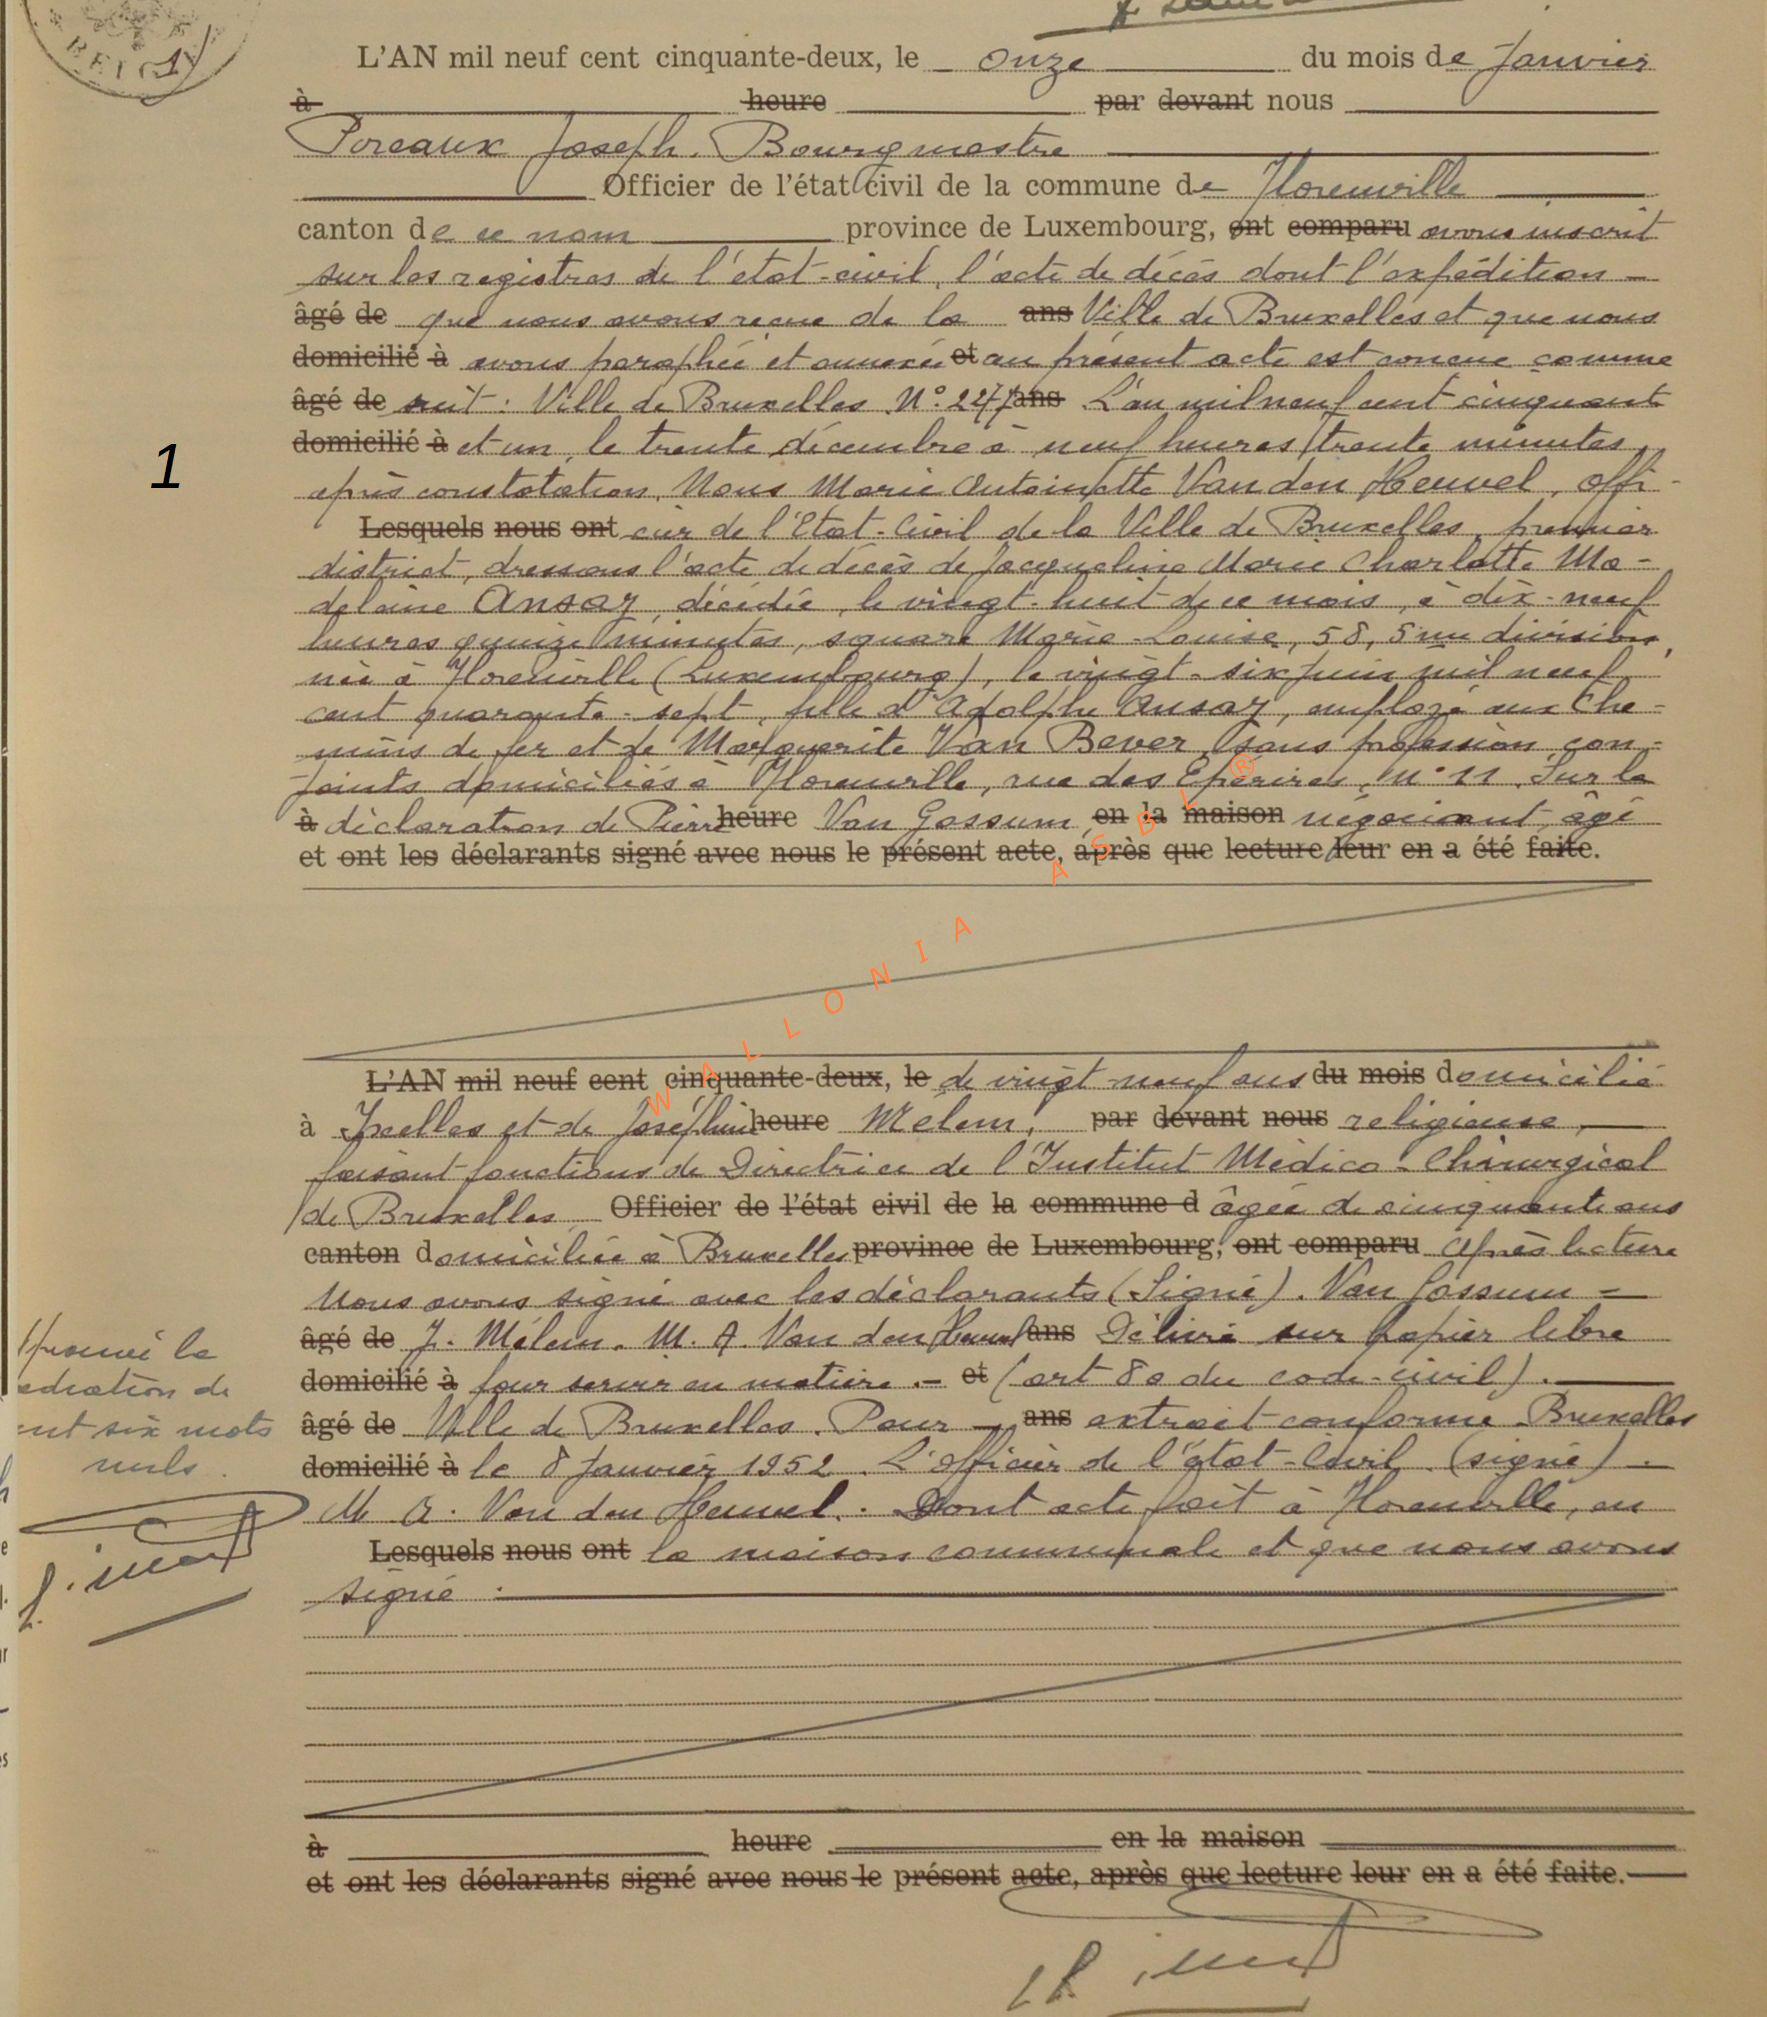 BELG
L'AN mil neuf cent cinquante-deux, le onze du mois de Janvier
à heure par devant nous
Poreaux Joseph. Bourgmestre
Officier de l'état civil de la commune de Florenville
canton de ce nom province de Luxembourg, ont comparu avons inscrit
sur les registres de l'état-civil, l'acte de décès dont l'expédition -
âgé de que nous avons reçue de la ans Ville de Bruxelles et que nous
domicilié à avons paraphée et annexée et au présent acte est conçue comme
âgé de suit : Ville de Bruxelles N° ans L'an mil neuf cent cinquante
domicilié à et un, le trente décembre à neuf heures trente minutes,
après constatation, Nous Marie Antoinette Van den Heuvel, offi-
Lesquels nous ont cier de l'Etat-Civil de la Ville de Bruxelles, premier
district, dressons l'acte de décès de Jacqueline Marie Charlotte Ma-
deleine Ansay, décédée, le vingt-huit de ce mois, à dix-neuf
heures quinze minutes, square Marie-Louise, 58, 5me division,
née à Florenville (Luxembourg), le vingt-six juin mil neuf
1
cent quarante-sept, fille d'Adolphe Ansay, employé aux Che-
mins de fer et de Marguerite Van Bever, sans profession, con-
joints domiciliés à Florenville, rue des Epérires, N° 11. Sur la
à déclaration de Pierre heure Van Gossum, en la maison négociant, âgé
et ont les déclarants signé avec nous le présent acte, après que lecture leur en a été faite.
WALLONIA ASBL ®
L'AN mil neuf cent cinquante-deux, le de vingt neuf ans du mois domicilié
à Ixelles et de Joséphine heure Mélem, par devant nous religieuse,
faisant fonctions de Directrice de l'Institut Médico-Chirurgical
de Bruxelles Officier de l'état civil de la commune d âgée de cinquante ans
canton domiciliée à Bruxelles province de Luxembourg, ont comparu Après lecture
Nous avons signé avec les déclarants (Signé). Van Gossum -
âgé de J. Mélem. M. A. Van den Heuvel ans Délivré sur papier libre
domicilié à pour servir en matière .- et (art 80 du code-civil).
âgé de Ville de Bruxelles. Pour - ans extrait conforme Bruxelles
domicilié à le 8 Janvier 1952. L'officier de l'état-Civil (signé).
M A. Van den Heuvel. Dont acte fait à Florenville, en
Lesquels nous ont la maison communale et que nous avons
signé :
à heure en la maison
et ont les déclarants signé avec nous le présent acte, après que lecture leur en a été faite.
pprouvé la
adiation de
ent six mots
nuls.